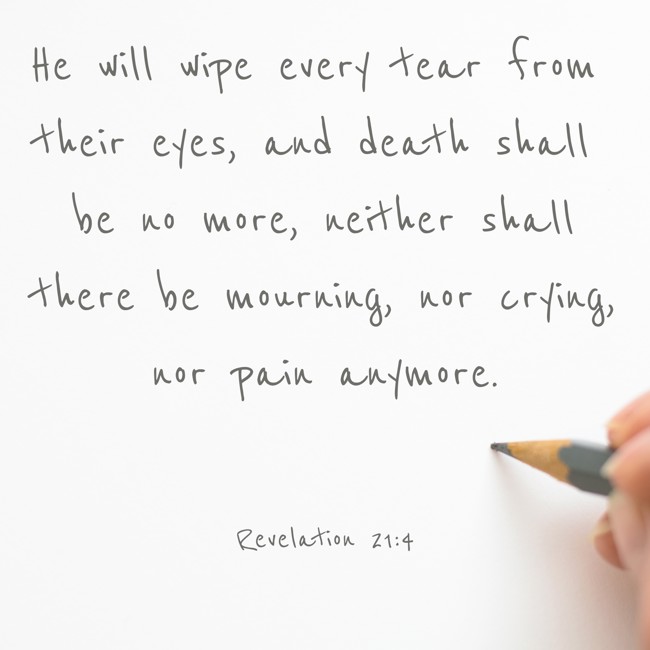 He will wipe every tear from
their eyes, and death shall
be no more, neither shall
there be mourning, nor crying,
nor pain anymore.
Revelation 21:4